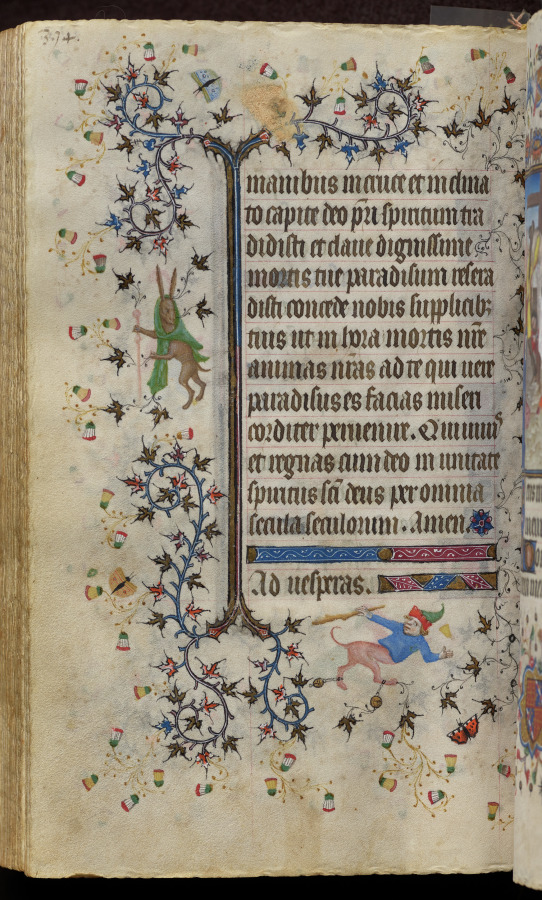 374.
manibus in cruce et inclina
to capite deo pr̃i spiritum tra
didisti et claue dignissime
mortis tue paradisum resera
disti concede nobis supplicibꝫ
tuis ut in hora mortis nr̃e
animas nr̃as ad te qui uere
paradisus es facias miseri
corditer peruenire. Qui uiuis
et regnas cum deo in unitate
spiritus sc̃i deus per omnia
secula seculorum. Amen
Ad uesperas.